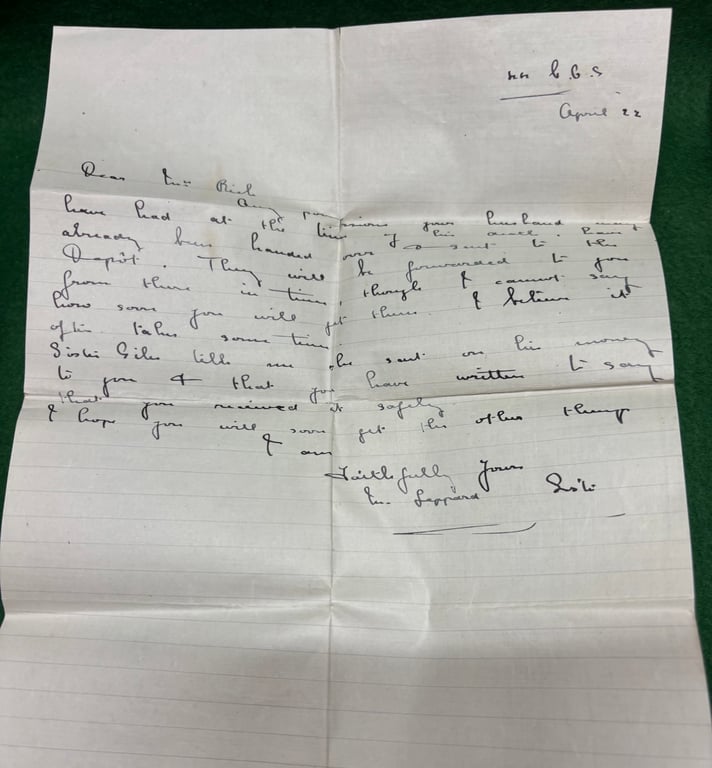 C.C.S
April 22
Dear Mrs Rich
Any possessions your husband may
have had at the time of his death have
already been handed over & sent to the
Depôt. They will be forwarded to you
from there in time, though I cannot say
how soon you will get them. I believe it
often takes some time.
Sister Giles tells me she sent on his money
to you & that you have written to say
that you received it safely
I hope you will soon get the other things
I am
Faithfully Yours
M. Leppard Sister